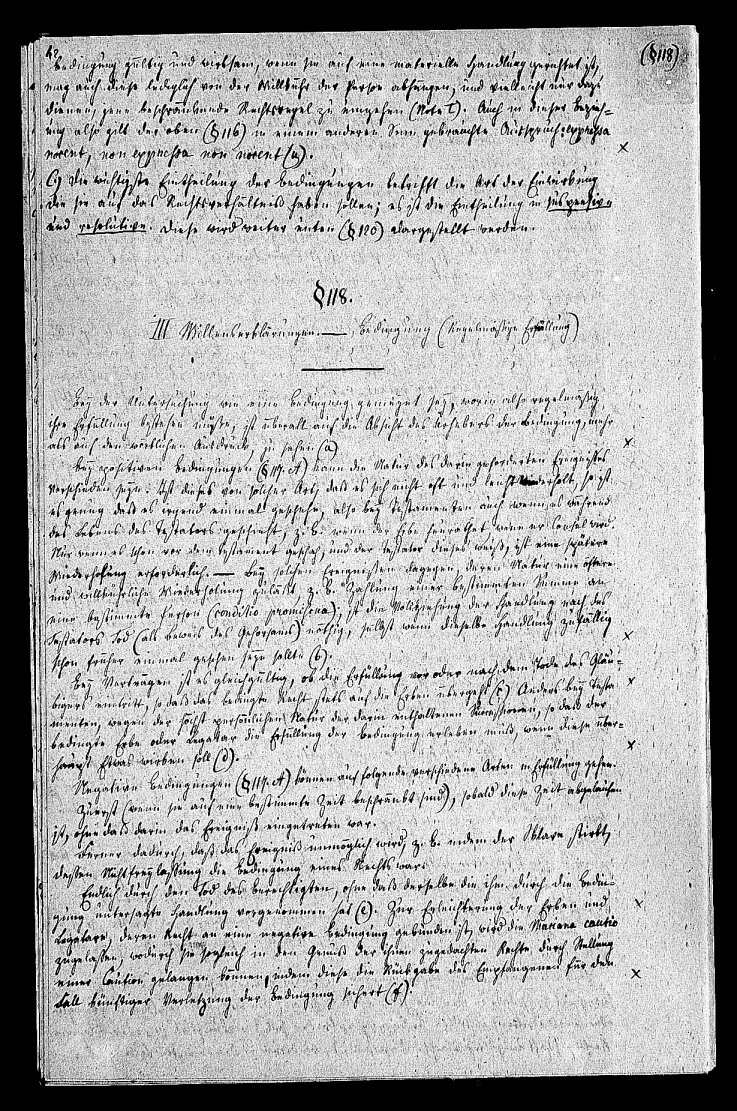 42 (§118)
Bedingung gültig und wirksam, wenn sie auf eine materielle Handlung gerichtet ist,
mag auch diese lediglich von der Willkühr der Person abhängen, und vielleicht nur dazu
dienen, jene beschränkende Rechtsregel zu umgehen (Note t). Auch in dieser Bezieh-
ung also gilt der oben (§116) in einem anderen Sinn gebrauchte Ausspruch: expressa
nocent, non expressa non nocent (u).
Die wichtigste Eintheilung der Bedingungen betrifft die Art der Einwirkung
die sie auf das Rechtsverhältniß haben sollen; es ist die Eintheilung in suspensive
und resolutive. Diese wird weiter unten (§120) dargestellt werden.
§118.
III Willenserklärungen. — Bedingung (Regelmäßige Erfüllung)
Bey der Untersuchung wie eine Bedingung gemeynt sey, worin also regelmäßig
ihre Erfüllung bestehen müsse, ist überall auf die Absicht des Urhebers der Bedingung, mehr
als auf den wörtlichen Ausdruck, zu sehen (a)
Bey positiven Bedingungen (§117.A) kann die Natur des darin geforderten Ereignisses
verschieden seyn. Ist dieses von solcher Art, daß es sich nicht oft und leicht wiederholt, so ist
es genug daß es irgend einmal geschehe, also bey Testamenten auch wenn es während
des Lebens des Testators geschieht, z. B. wenn der Erbe heurathet wenn er Consul wird.
Nur wenn es schon vor dem Testament geschah, und der Testator dieses weiß, ist eine spätere
Wiederholung erforderlich. — Bey solchen Ereignissen dagegen, deren Natur eine öftere
und willkührliche Wiederholung zuläßt, z. B. Zahlung einer bestimmten Summe an
eine bestimmte Person (conditio promiscua), ist die Vollziehung der Handlung nach des
Testators Tod (als Beweis des Gehorsams) nöthig, selbst wenn dieselbe Handlung zufällig
schon früher einmal geschehen seyn sollte (b).
Bey Verträgen ist es gleichgültig, ob die Erfüllung vor oder nach dem Tode des Gläu-
bigers eintritt, so daß das bedingte Recht stets auf die Erben übergeht (c). Anders bey Testa-
menten, wegen der höchst persönlichen Natur der darin enthaltenen Successionen, so daß der
bedingte Erbe oder Legatar die Erfüllung der Bedingung erleben muß, wenn diese über-
haupt Etwas wirken soll (d).
Negative Bedingungen (§117.A) können auf folgende verschiedene Arten in Erfüllung gehen.
Zuerst (wenn sie auf eine bestimmte Zeit beschränkt sind), sobald diese Zeit abgelaufen
ist, ohne daß darin das Ereigniß eingetreten war.
Ferner dadurch, daß das Ereigniß unmöglich wird, z. B. indem der Sklave stirbt,
dessen Nichtfreylassung die Bedingung eines Rechts war.
Endlich durch den Tod des Berechtigten, ohne daß derselbe die ihm durch die Bedin-
gung untersagte Handlung vorgenommen hat (e). Zur Erleichterung der Erben und
Legatare, deren Recht an eine negative Bedingung gebunden ist, wird die Muciana cautio
zugelassen, wodurch sie sogleich in den Genuß der ihnen zugedachten Rechte durch Stellung
einer Caution gelangen können, indem diese die Rückgabe des Empfangenen für den
Fall künftiger Verletzung der Bedingung sichert (f).